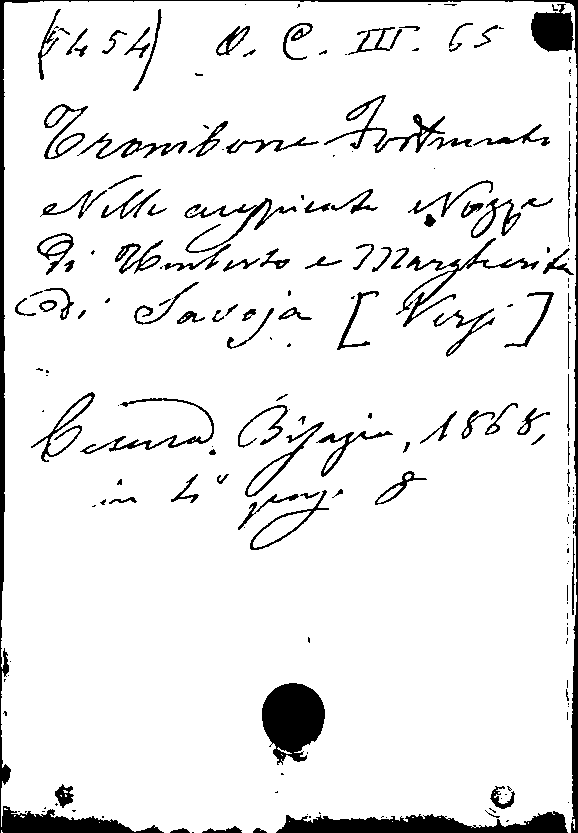 (5454) O. C. III. 65
Trombone Fortunato
Nelle auspicate Nozze
di Umberto e Margherita
di Savoja [Versi]
Cesena. Bisazia, 1868,
in 4° pag. 8